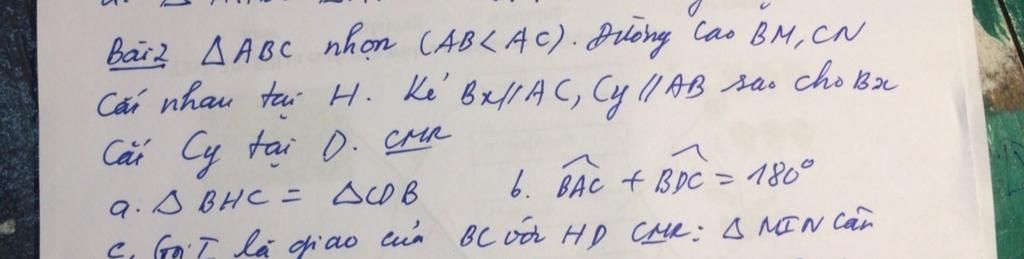 Bài 2 △ ABC nhọn (AB < AC). Đường cao BM, CN
Cắt nhau tại H. Kẻ Bx // AC, Cy // AB sao cho Bx
Cắt Cy tại D. CMR
a. △ BHC = △ CDB b. BAC + BDC = 180°
c. Gọi I là giao của BC với HD CMR: △ MIN cân